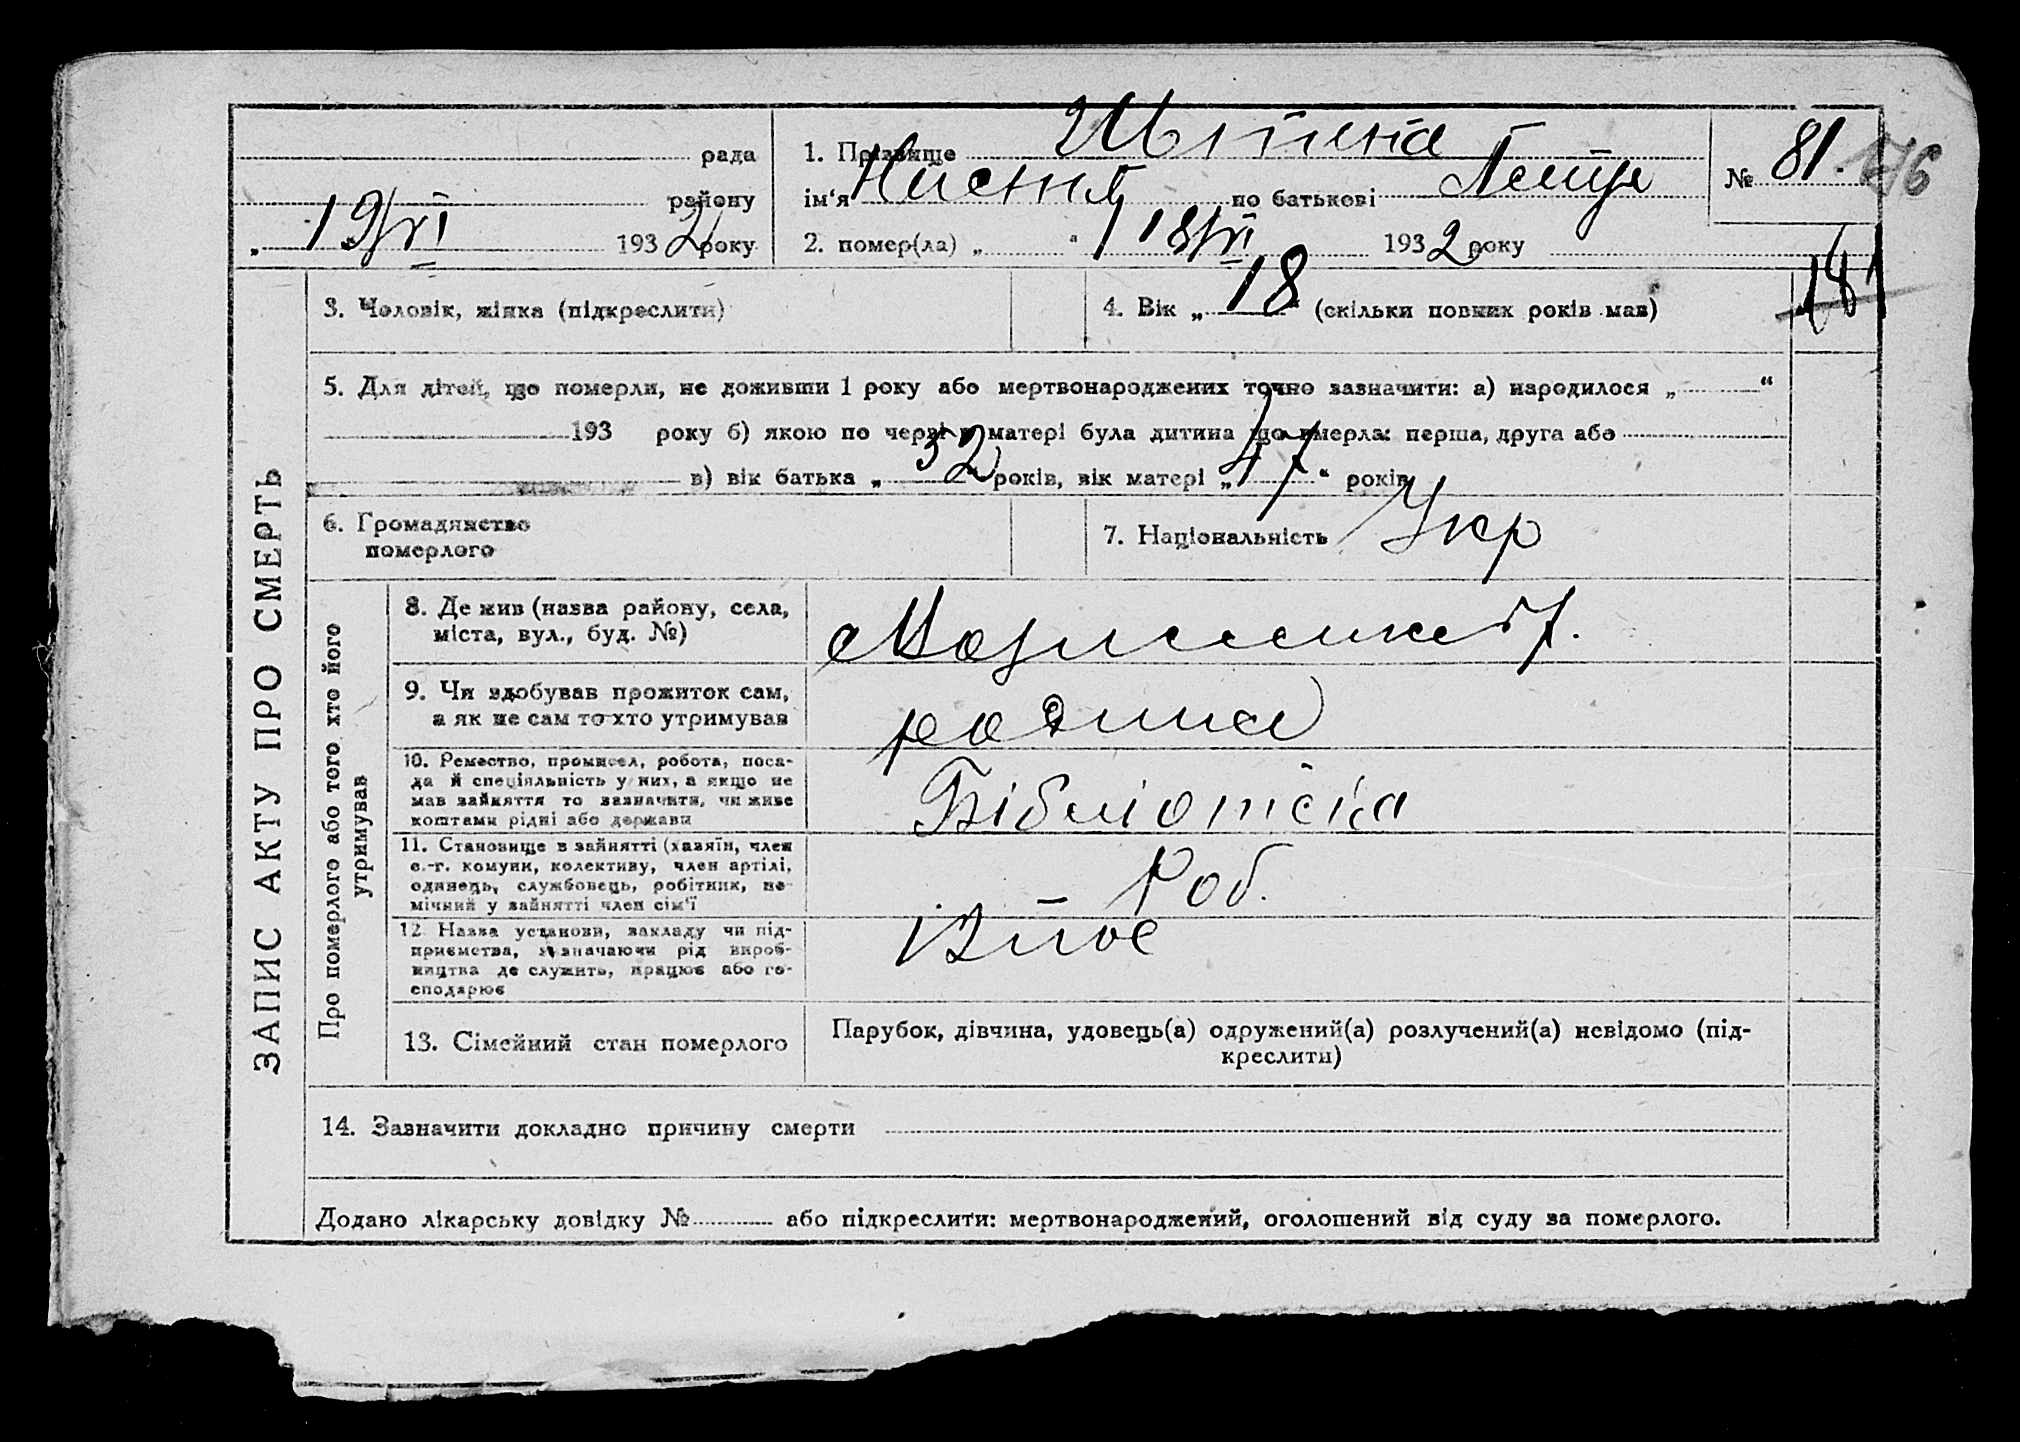 рада
1. Прізвище
№ 81. 176
району
ім'я по батькові
" 19/VI 1932 року
2. помер(ла) " " 18/VI 1932 року
3. Чоловік, жінка (підкреслити)
4. Вік „ 18 “ (скільки повних років мав)
5. Для дітей, що померли, не доживши 1 року або мертвонароджених точно зазначити: а) народилося „ “
193 року б) якою по черзі в матері була дитина що вмерла: перша, друга або
в) вік батька „ 52 років, вік матері „ 47 “ років
6. Громадянство
померлого
7. Національність Укр
ЗАПИС АКТУ ПРО СМЕРТЬ
Про померлого або того хто його
утримував
8. Де жив (назва району, села,
міста, вул., буд. №)
9. Чи здобував прожиток сам,
а як не сам то хто утримував
родина
10. Ремество, промисел, робота, поса-
да й спеціяльність у них, а якщо не
мав зайняття то зазначити, чи живе
коштами рідні або держави
Бібліотека
11. Становище в зайнятті (хазяїн, член
с.-г. комуни, колективу, член артілі,
одинець, службовець, робітник, не-
мічний у зайнятті член сім'ї
Роб.
12 Назва установи, закладу чи під-
приємства, зазначаючи рід вироб-
ництва де служить, працює або го-
сподарює
13. Сімейний стан померлого
Парубок, дівчина, удовець(а) одружений(а) розлучений(а) невідомо (під-
креслити)
14. Зазначити докладно причину смерти
Додано лікарську довідку № або підкреслити: мертвонароджений, оголошений від суду за померлого.